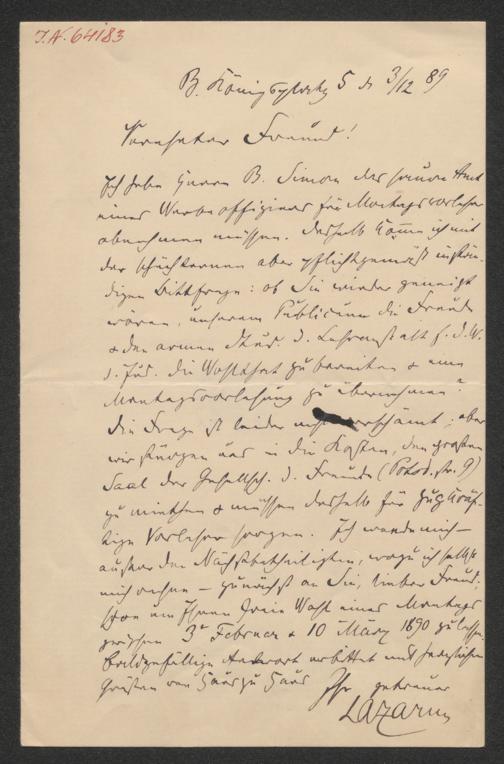 J.N. 64183
B. Königsplatz 5 d 3/12 89
Verehrter Freund!
Ich habe Herrn B. Simon das saure Amt
eines Werbeoffiziers für Montagsvorleser
abnehmen müssen. Deshalb komme ich mit
der schüchternen aber pflichtgemäß instän-
digen Bittfrage: ob Sie wieder geneigt
wären, unserem Publicum die Freude
& den armen Stud. d. Lehranstalt f. d. W.
d. Jud. die Wohlthat zu bereiten & eine
Montagsvorlesung zu übernehmen?
Die Frage ist leider verschämt; aber
wir stürzen uns in die Kosten, den großen
Saal der Gesellsch. d. Freunde (Potsd. str. 9)
zu miethen & müssen deshalb für zugkräf-
tige Vorleser sorgen. Ich wende mich –
außer den Nächstbetheiligten, wozu ich selbst
mich rechne – zunächst an Sie, lieber Freund,
schon um Ihnen freie Wahl eines Montags
zwischen 3ᵗ Februar & 10 März 1890 zu lassen.
Baldgefällige Antwort erbittet mit herzlichen
Grüßen von Haus zu Haus Ihr getreuer
Lazarus